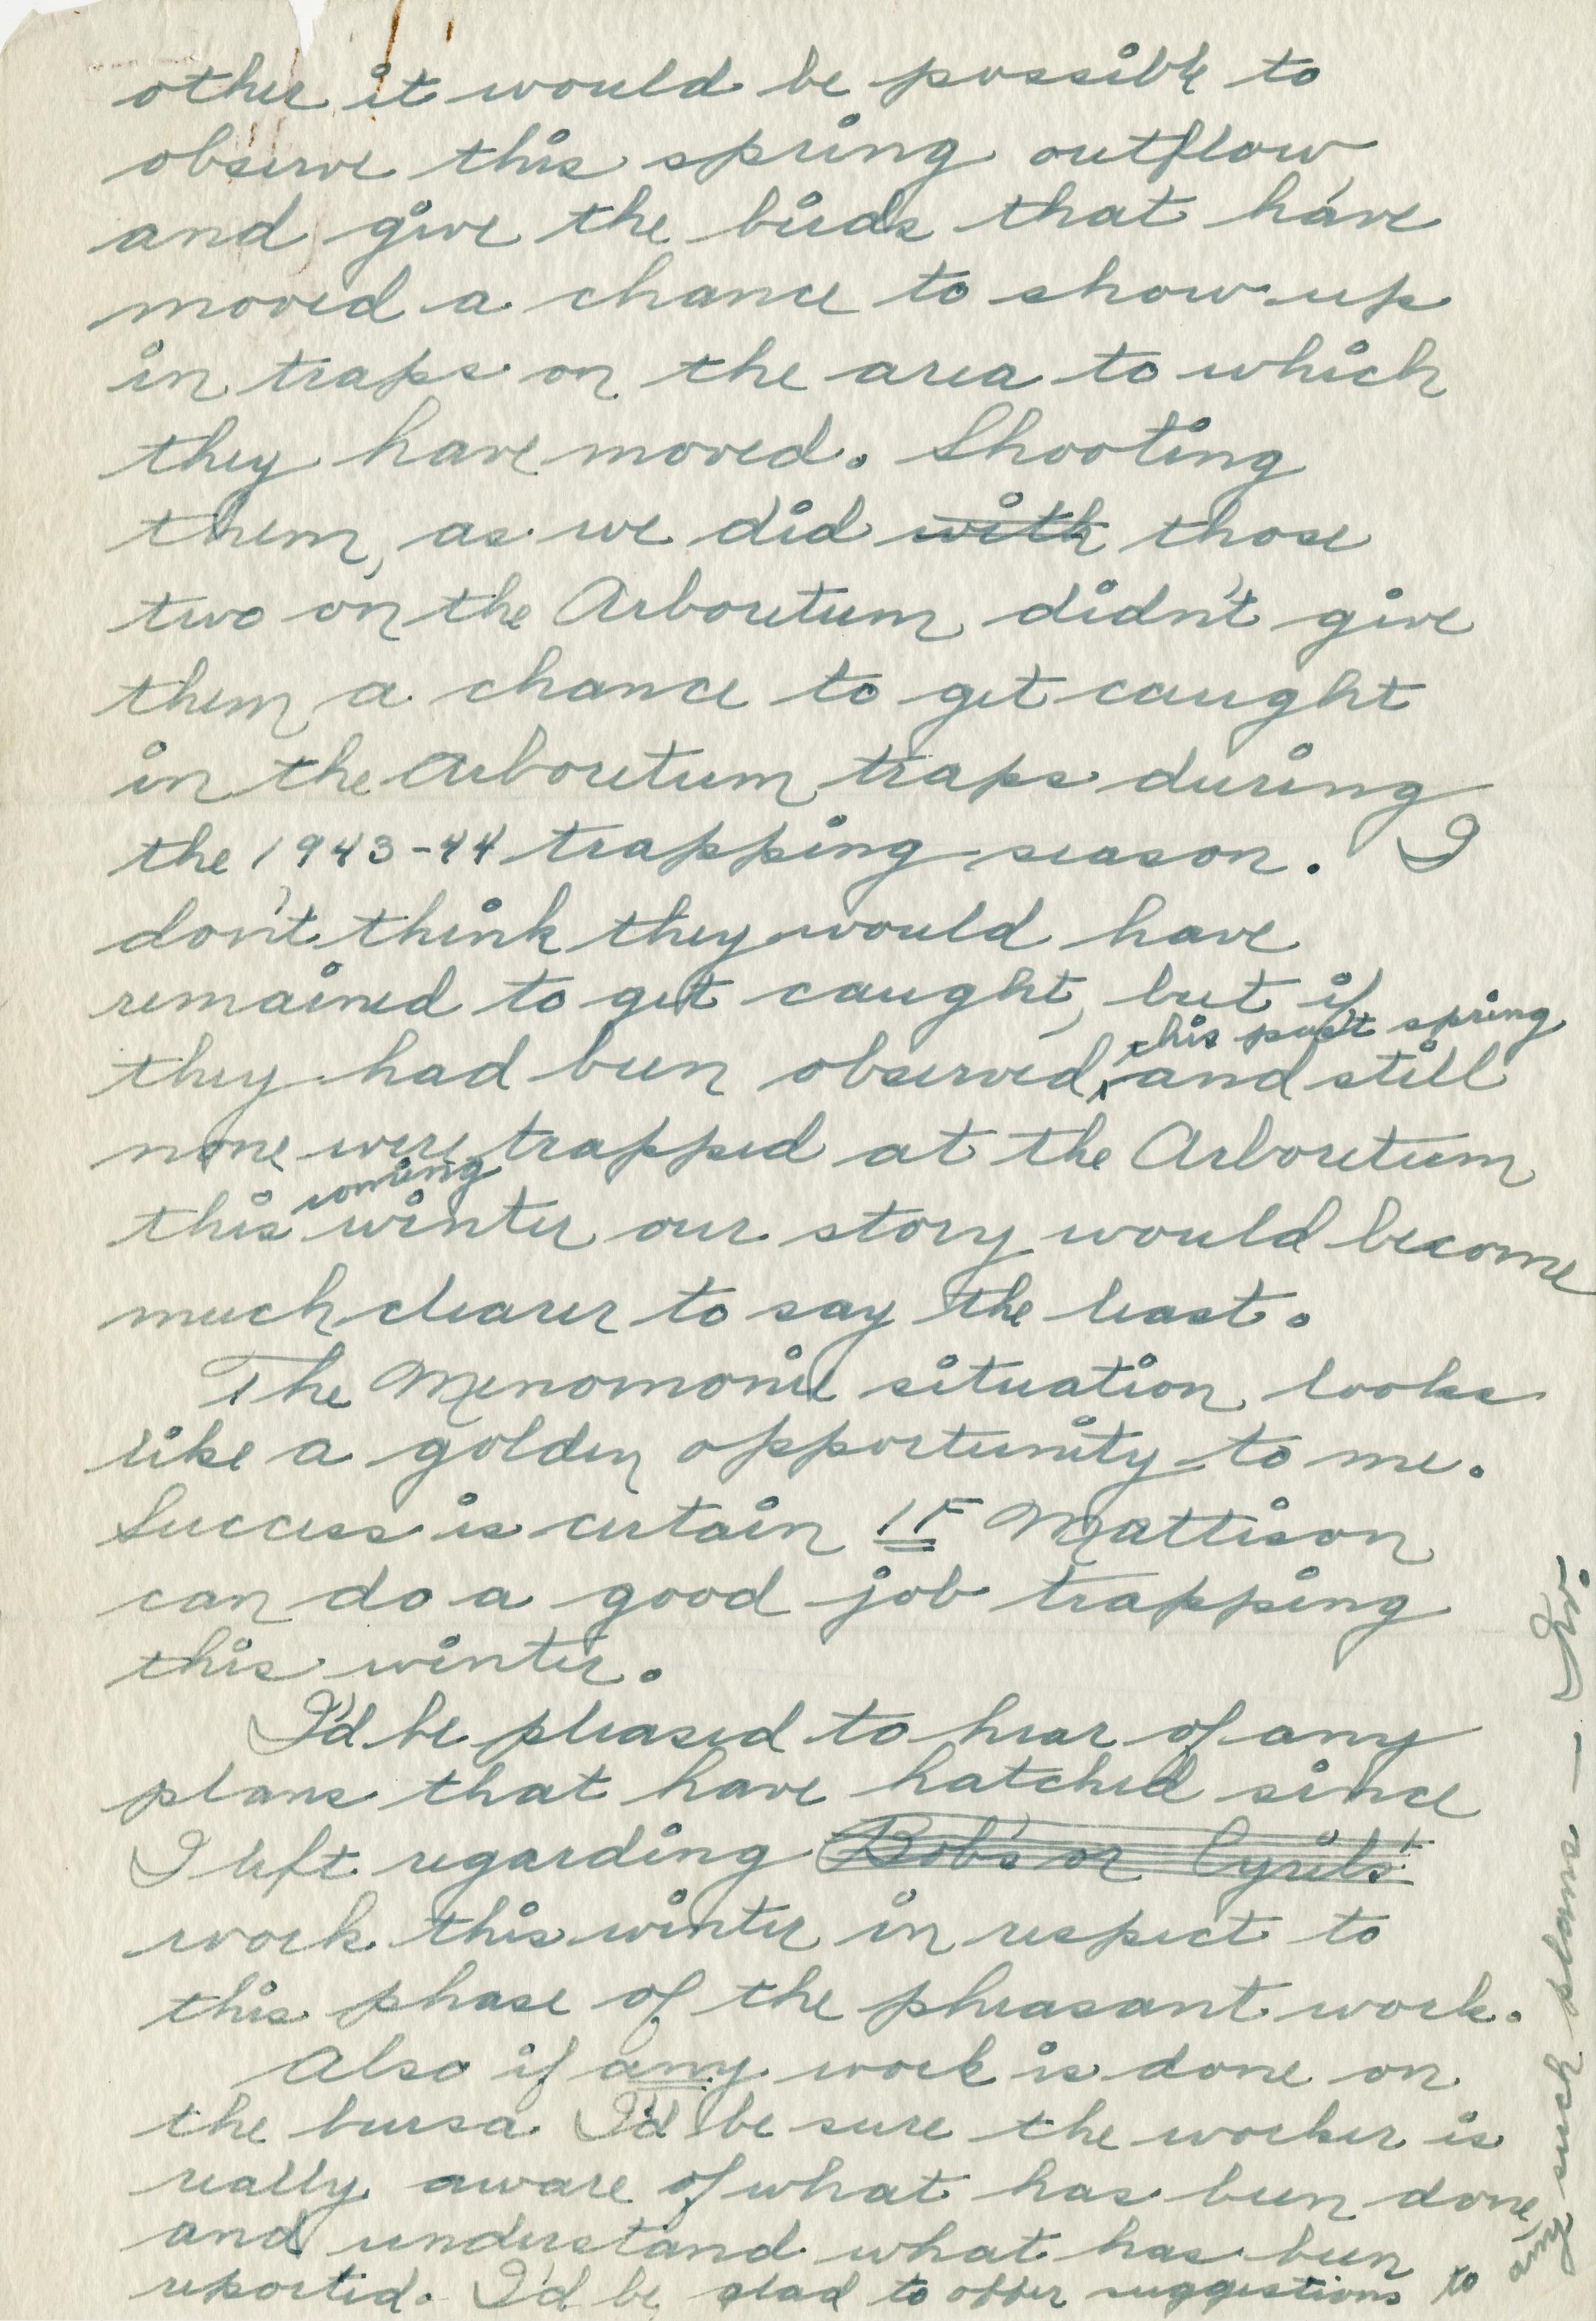 other it would be possible to
observe this spring outflow
and give the birds that have
moved a chance to show up
in traps on the area to which
they have moved. Shooting
them, as we did with those
two on the Arboretum didn't give
them a chance to get caught
in the Arboretum traps during
the 1943-44 trapping season. I
don't think they would have
remained to get caught, but if
this past spring
they had been observed, and still
none were trapped at the Arboretum
coming
this winter our story would become
much clearer to say the least.
The Menomonie situation looks
like a golden opportunity to me.
Success is certain IF Mattison
can do a good job trapping
this winter.
I'd be pleased to hear of any
plans that have hatched since
I left regarding Bob's or Cyril's
work this winter in respect to
this phase of the pheasant work.
Also if any work is done on
the bursa I'd be sure the worker is
really aware of what has been done,
and understand what has been
reported. I'd be glad to offer suggestions to
any such plans — Irv